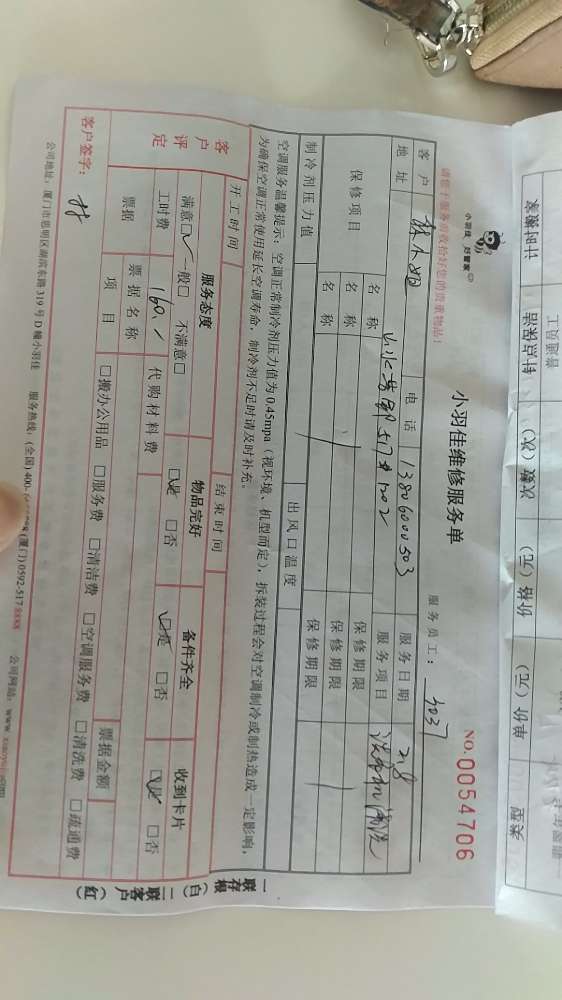 小羽佳 好管家
请您于服务前收拾好您的贵重物品!
小羽佳维修服务单
服务员工: 4037
NO.0054706
客户 林小姐 电话 13806000503 服务日期 2.8
地址 517#1202 服务项目 洗衣机清洗
保修项目 名称 保修期限
名称 保修期限
名称 保修期限
制冷剂压力值 出风口温度
空调服务温馨提示:空调正常制冷剂压力值为0.45mpa(视环境、机型而定),拆装过程会对空调制冷或制热造成一定影响,
为确保空调正常使用延长空调寿命,制冷剂不足时请及时补充。
开工时间 结束时间
客户评定 服务态度 物品完好 备件齐全 收到卡片
满意☑ 一般□ 不满意□ ☑是 □否 ☑是 □否 ☑是 □否
工时费 160. 代购材料费
票据 票据名称 票据金额
项目 □搬办公用品 □服务费 □清洁费 □空调服务费 □清洗费 □疏通费
客户签字:
公司地址:厦门市思明区湖滨东路319号D幢小羽佳 服务热线:(全国)400- (厦门)0592-517 公司网站:www.
一联存根(白) 二联客户(红)
计时搬家
针点保洁
次数(次)
价格(元)
单价(元)
类型